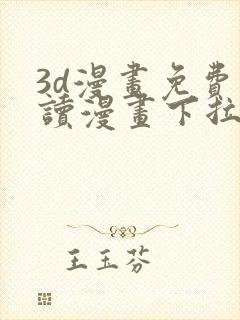 3d漫畫免費
讀漫畫下拉
王玉芬